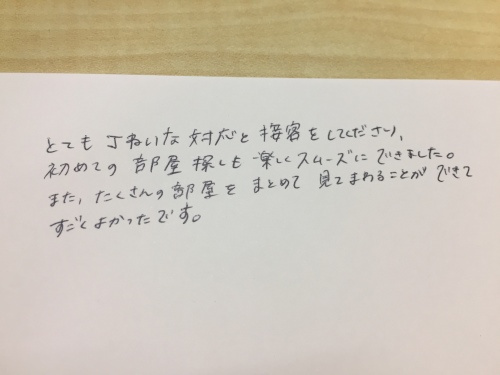 とても丁ねいな対応と接客をしてくださり、
初めての部屋探しも楽しくスムーズにできました。
また、たくさんの部屋をまとめて見てまわることができて
すごくよかったです。